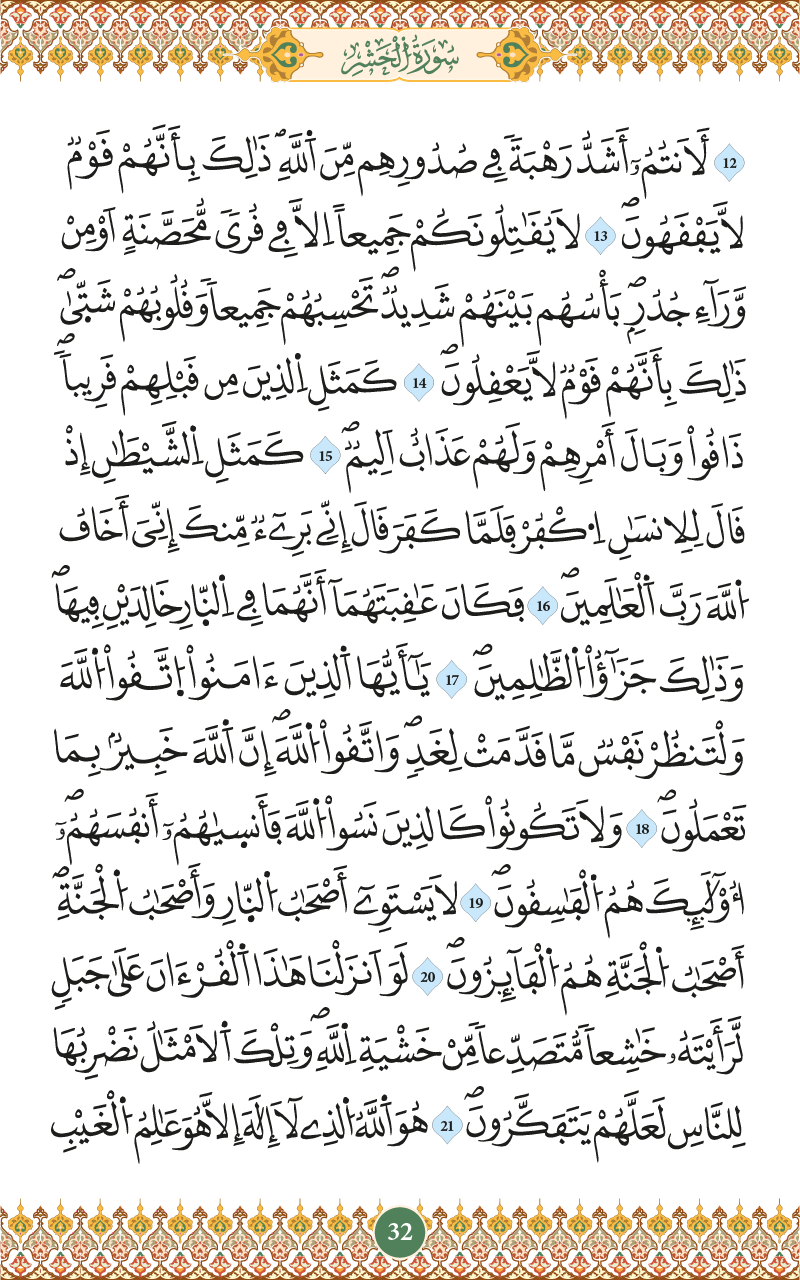 سُورَةُ الْحَشْرِ
12 لَأَنتُمُۥٓ أَشَدُّ رَهْبَةٗ فِے صُدُورِهِم مِّنَ اَ۬للَّهِۖ ذَٰلِكَ بِأَنَّهُمْ قَوْمٞ
لَّا يَفْقَهُونَۖ 13 لَا يُقَٰتِلُونَكُمْ جَمِيعاً اِلَّا فِے قُريٗ مُّحَصَّنَةٍ اَوْ مِنْ
وَّرَآءِ جُدُرِۢۖ بَأْسُهُم بَيْنَهُمْ شَدِيدٞۖ تَحْسِبُهُمْ جَمِيعاٗ وَقُلُوبُهُمْ شَتّ۪ىٰۖ
ذَٰلِكَ بِأَنَّهُمْ قَوْمٞ لَّا يَعْقِلُونَۖ 14 كَمَثَلِ اِ۬لذِينَ مِن قَبْلِهِمْ قَرِيباٗۖ
ذَاقُواْ وَبَالَ أَمْرِهِمْ وَلَهُمْ عَذَابٌ اَلِيمٞۖ 15 كَمَثَلِ اِ۬لشَّيْطَٰنِ إِذْ
قَالَ لِلِانسَٰنِ اِ۟كْفُرْ فَلَمَّا كَفَرَ قَالَ إِنِّے بَرِےٓءٞ مِّنكَ إِنِّيَ أَخَافُ
اُ۬للَّهَ رَبَّ اَ۬لْعَٰلَمِينَۖ 16 فَكَانَ عَٰقِبَتَهُمَآ أَنَّهُمَا فِے اِ۬لنّ۪ارِ خَٰلِدَيْنِ فِيهَاۖ
وَذَٰلِكَ جَزَٰٓؤُاْ اُ۬لظَّٰلِمِينَۖ 17 يَٰٓأَيُّهَا اَ۬لذِينَ ءَامَنُواْ اُ۪تَّقُواْ اُ۬للَّهَ
وَلْتَنظُرْ نَفْسٞ مَّا قَدَّمَتْ لِغَدٖۖ وَاتَّقُواْ اُ۬للَّهَۖ إِنَّ اَ۬للَّهَ خَبِيرُۢ بِمَا
تَعْمَلُونَۖ 18 وَلَا تَكُونُواْ كَالذِينَ نَسُواْ اُ۬للَّهَ فَأَنس۪يٰهُمُۥٓ أَنفُسَهُمُۥٓۖ
أُوْلَٰٓئِكَ هُمُ اُ۬لْفَٰسِقُونَۖ 19 لَا يَسْتَوِےٓ أَصْحَٰبُ اُ۬لنّ۪ارِ وَأَصْحَٰبُ اُ۬لْجَنَّةِۖ
أَصْحَٰبُ اُ۬لْجَنَّةِ هُمُ اُ۬لْفَآئِزُونَۖ 20 لَوَ اَنزَلْنَا هَٰذَا اَ۬لْقُرْءَانَ عَلَىٰ جَبَلٖ
لَّرَأَيْتَهُۥ خَٰشِعاٗ مُّتَصَدِّعاٗ مِّنْ خَشْيَةِ اِ۬للَّهِۖ وَتِلْكَ اَ۬لَامْثَٰلُ نَضْرِبُهَا
لِلنَّاسِ لَعَلَّهُمْ يَتَفَكَّرُونَۖ 21 هُوَ اَ۬للَّهُ اُ۬لذِے لَآ إِلَٰهَ إِلَّا هُوَ عَٰلِمُ اُ۬لْغَيْبِ
32